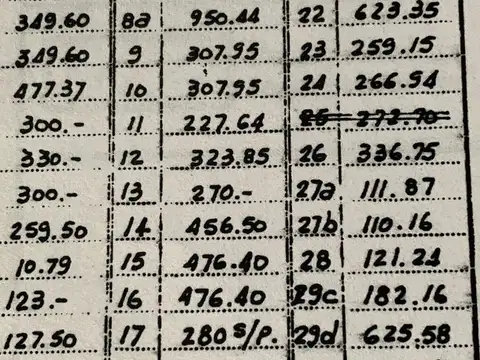 349.60 8a 950.44 22 623.35
349.60 9 307.95 23 259.15
477.37 10 307.95 24 266.94
300.- 11 227.64 25 272.70
330.- 12 323.85 26 336.75
300.- 13 270.- 27a 111.87
259.50 14 456.50 27b 110.16
10.79 15 476.40 28 121.24
123.- 16 476.40 29c 182.16
127.50 17 280 S/P. 29d 625.58